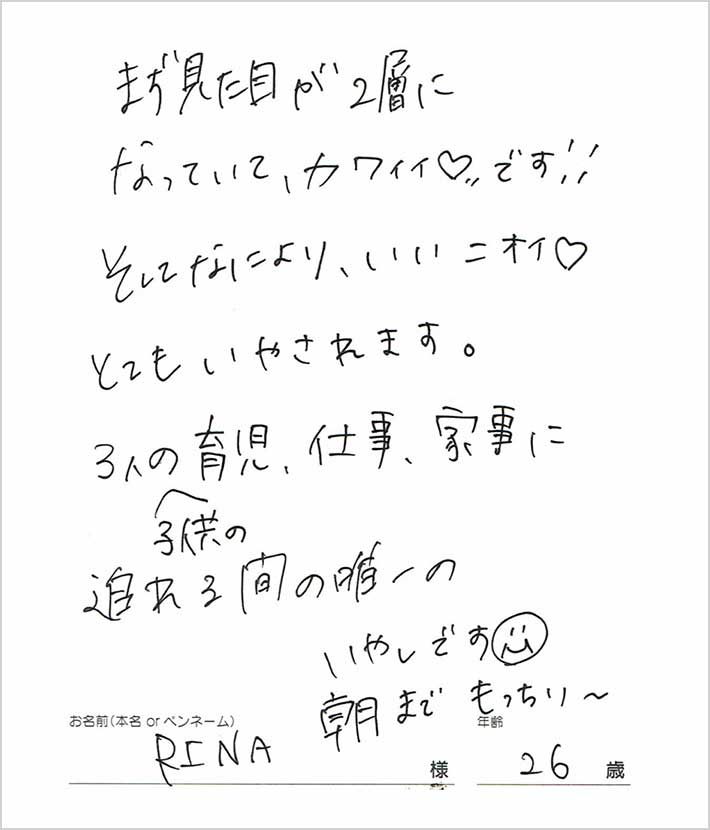 まず見た目が2層に
なっていて、カワイイ♡です!!
そしてなにより、いいニオイ♡
とてもいやされます。
3人の育児、仕事、家事に
子供の
追れる間の唯一の
いやしです☺
朝まで もっちり〜
お名前(本名 or ペンネーム)
RINA 様
年齢
26 歳